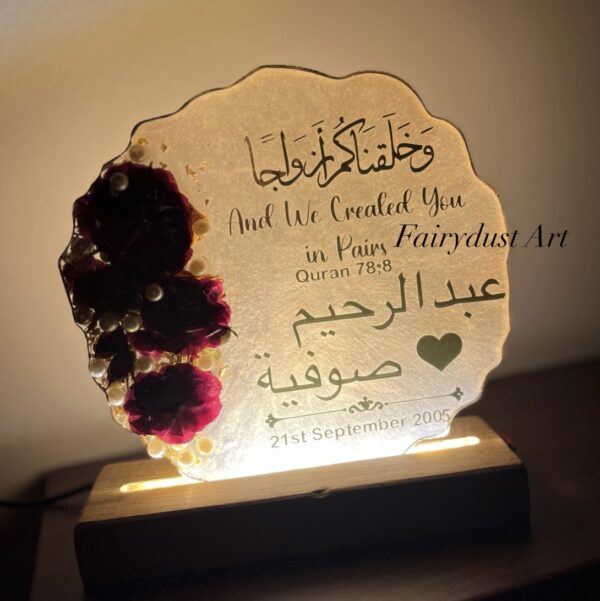 وَخَلَقْنَاكُمْ أَزْوَاجًا
And We Created You
in Pairs
Fairydust Art
Quran 78;8
عبدالرحيم
صوفية ♥
21st September 2005